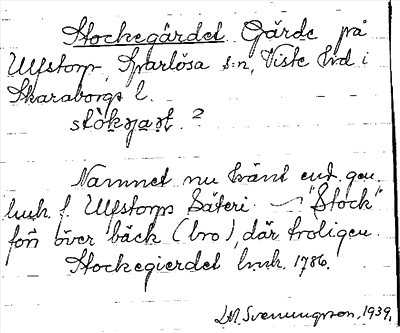 Stockegärdet Gärde på
Ulfstorp, Sparlösa s:n, Viste hd i
Skaraborgs l.
stòkɟaṣt. ?
Namnet nu känt end. gen.
lmh. f. Ulfstorps Säteri. "Stock"
för över bäck (bro), där troligen.
Stockegierdet lmh. 1786.
D.A. Svenungsson, 1939.